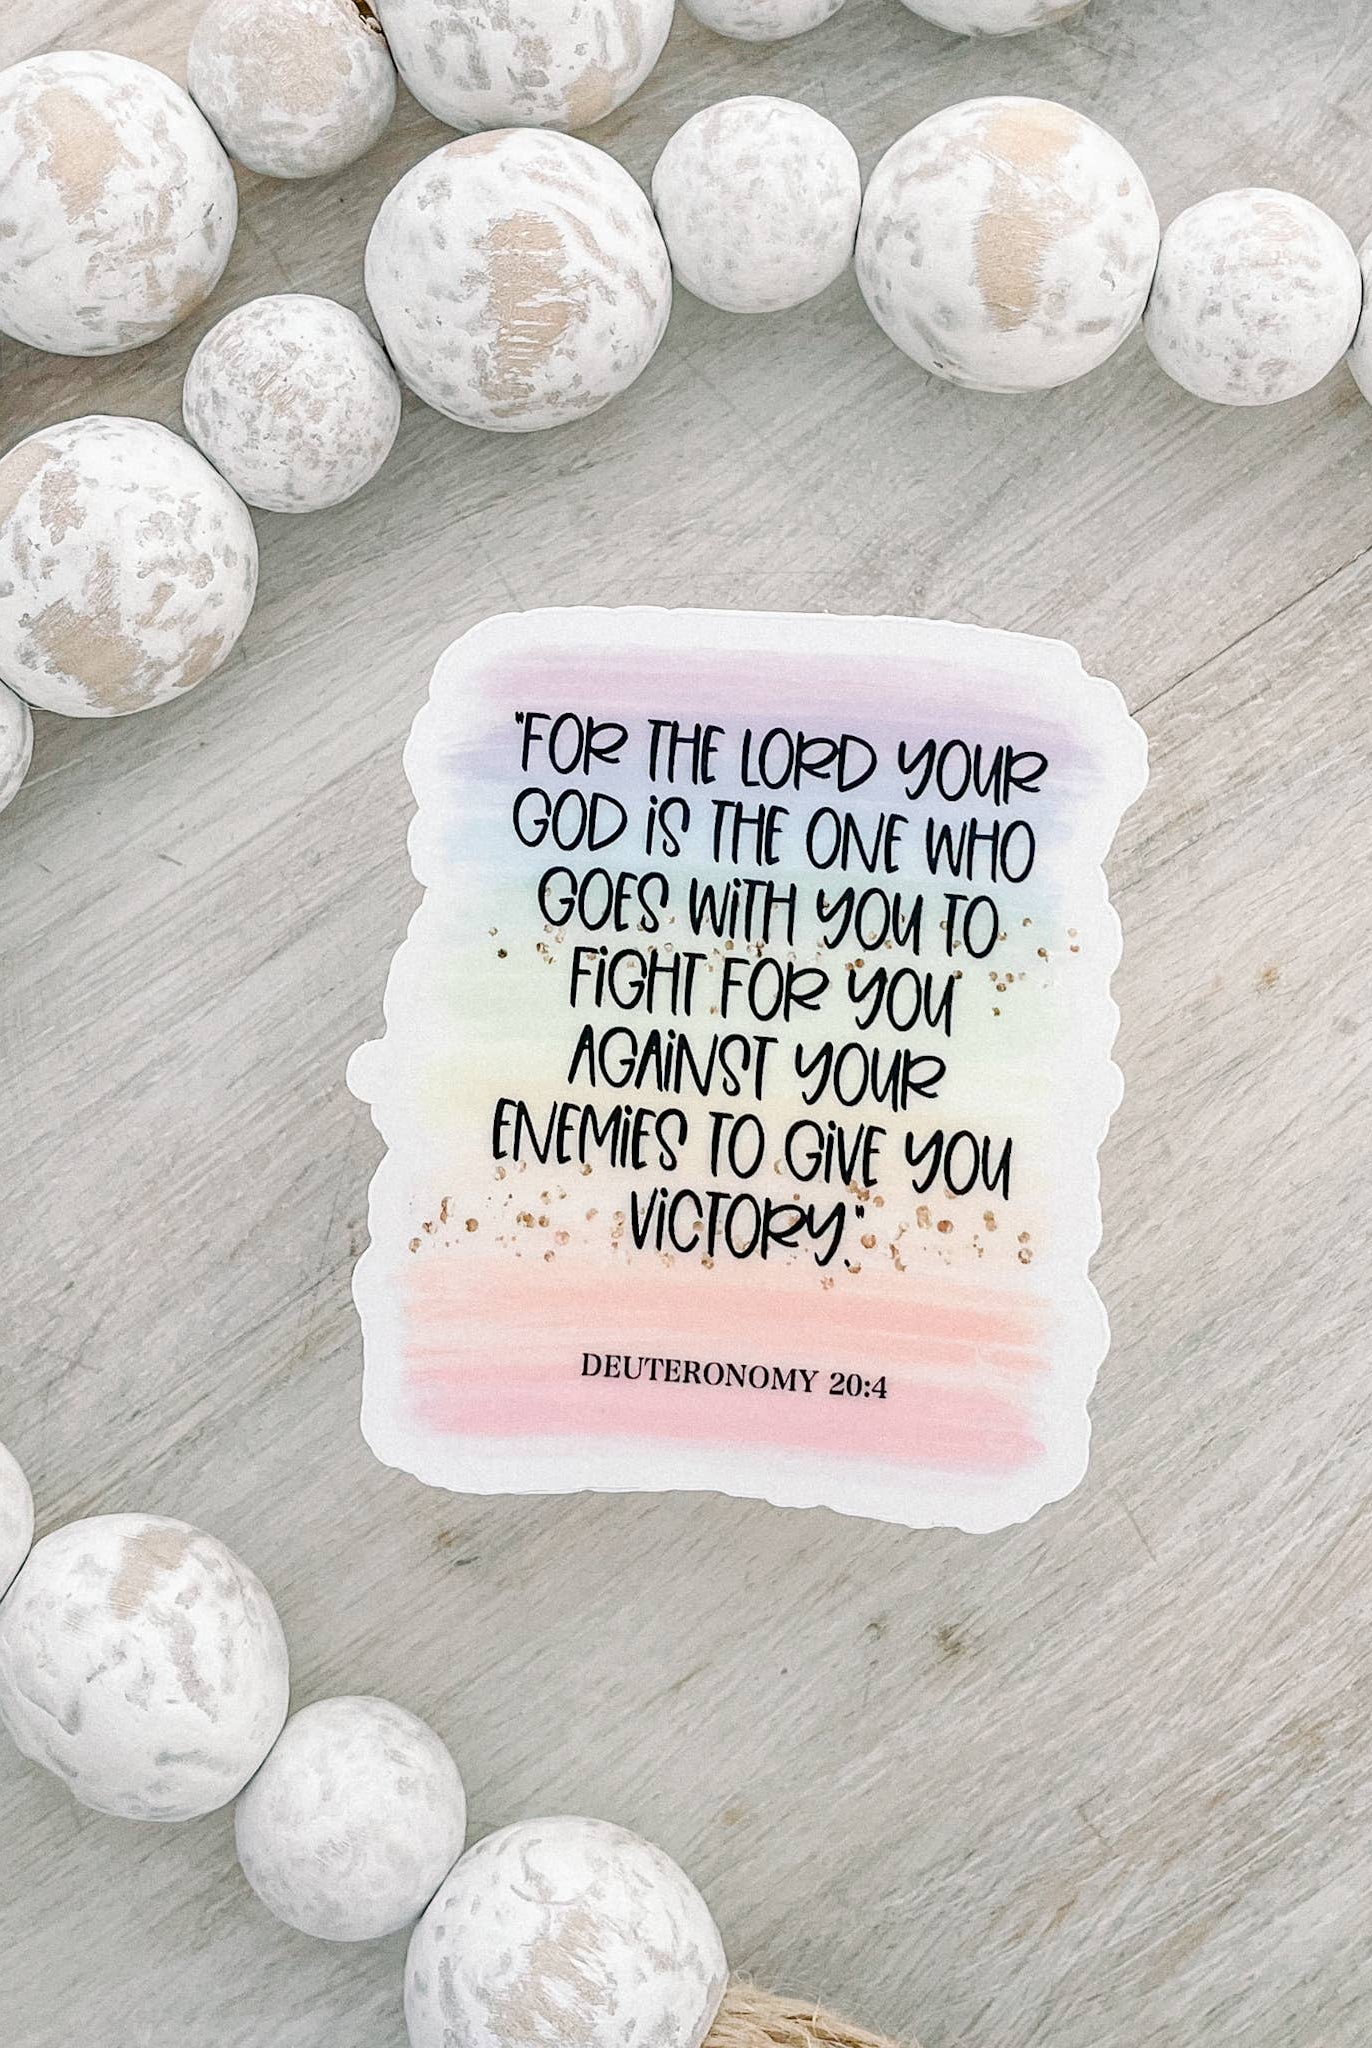 "FOR THE LORD YOUR
GOD iS THE ONE WHO
GOES WiTH YOU TO
FiGHT FOR YOU
AGAiNST YOUR
ENEMiES TO GiVE YOU
ViCTORY."
DEUTERONOMY 20:4